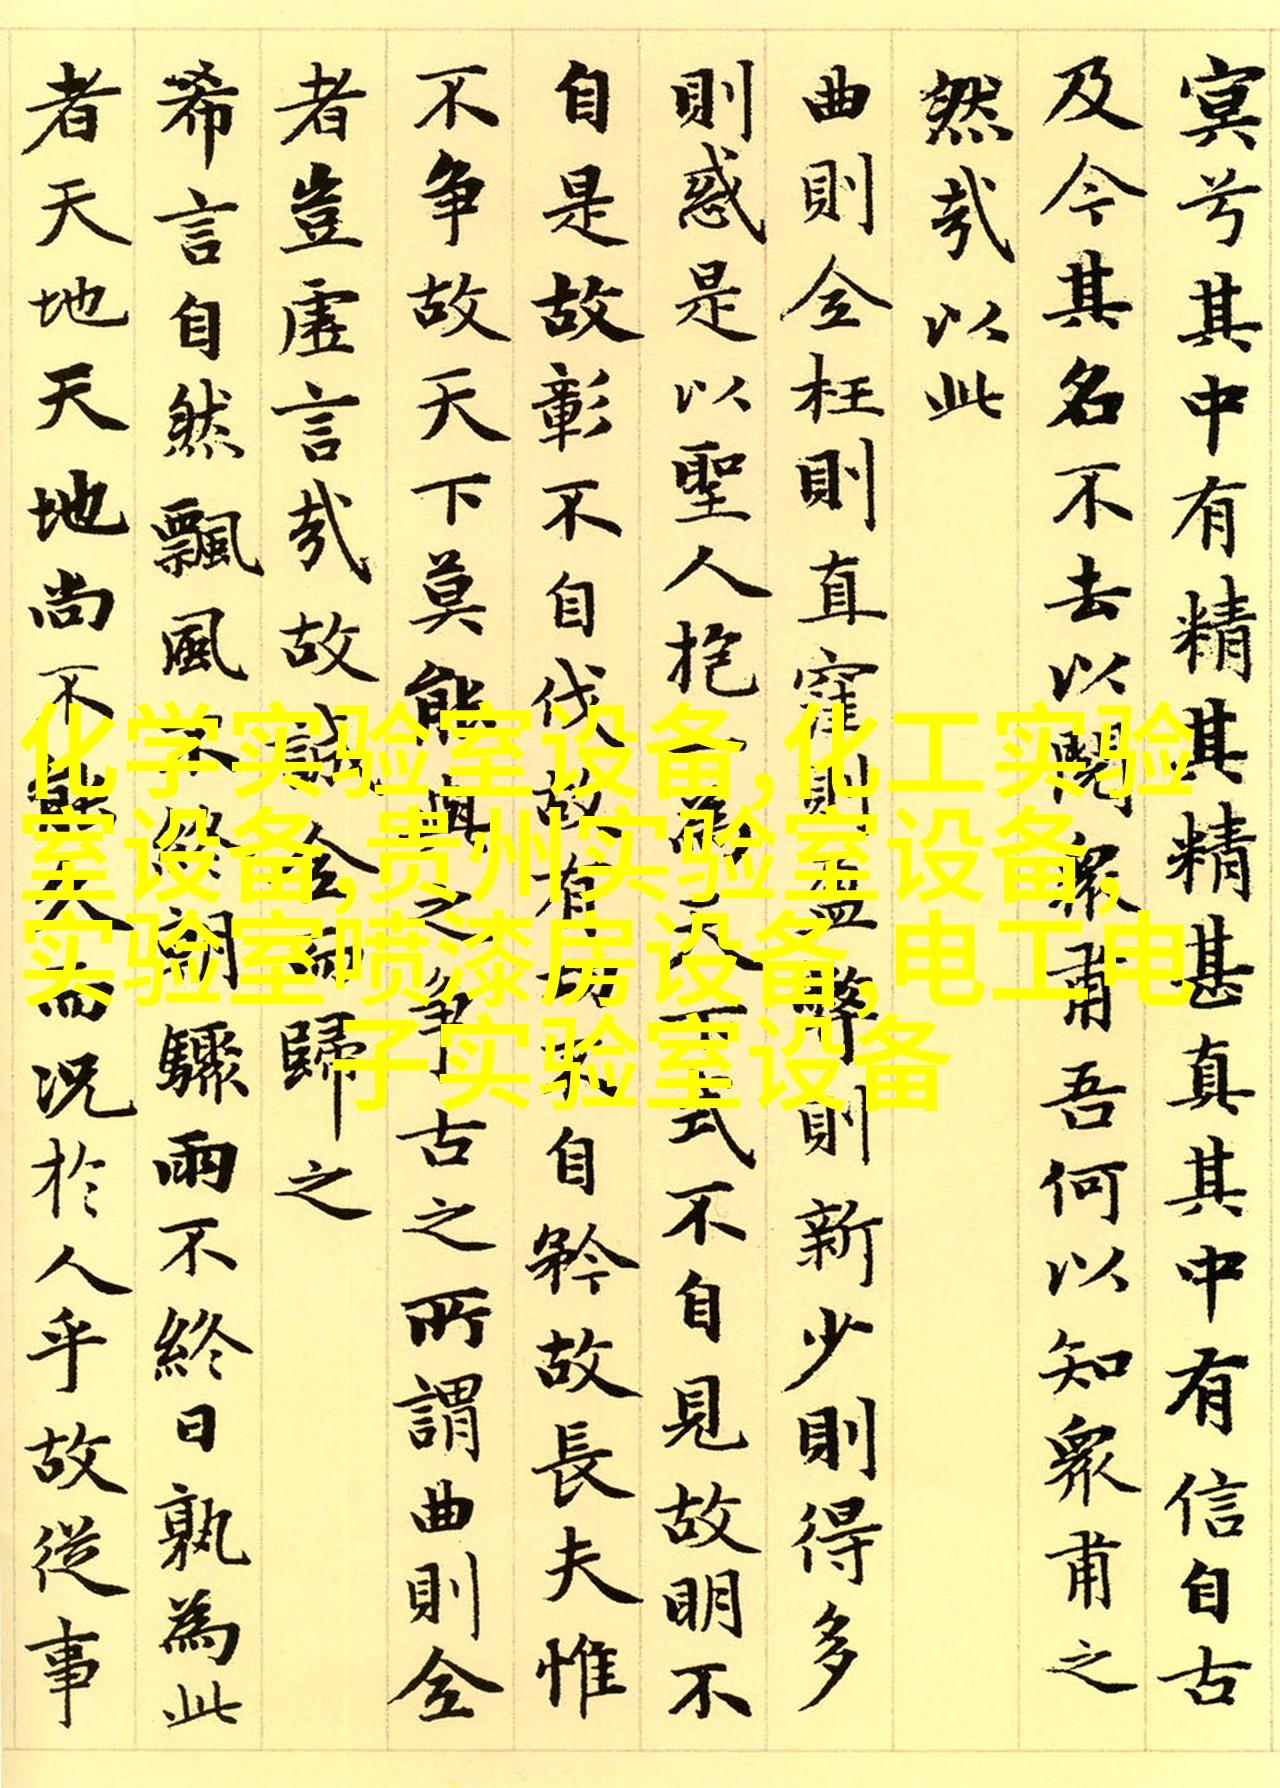 寞兮其中有精其精甚真其中有信自古
及今其名不去以閱衆甫吾何以知衆甫之
然哉以此
曲則全枉則直窪則盈弊則新少則得多
則惑是以聖人抱一為天下式不自見故明不
自是故彰不自伐故有功不自矜故長夫惟
不争故天下莫能與之争古之所謂曲則全
者豈虛言哉故誠全而歸之
希言自然飄風不終朝驟雨不終日孰為此
者天地天地尚不能久而况於人乎故從事
化学实验室设备,化工实验
室设备,贵州实验室设备,
实验室喷漆房设备,电工电
子实验室设备